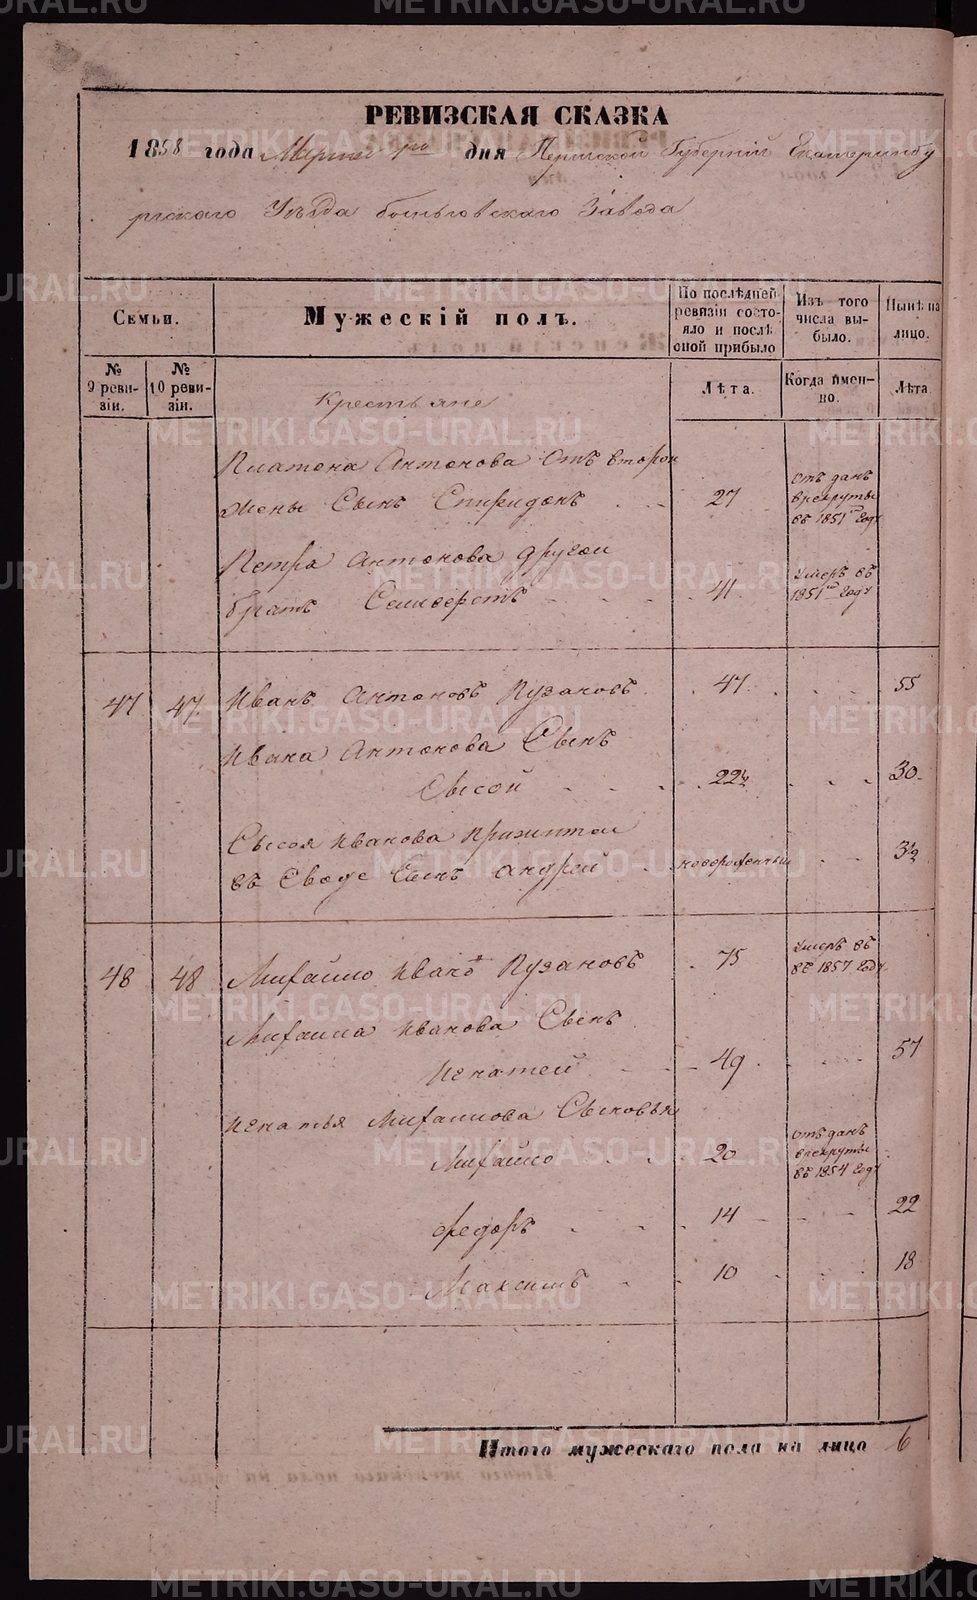 РЕВИЗСКАЯ СКАЗКА
1858 года Марта дня Пермской Губернiи Екатеринбу
ргскаго Уѣзда Боиньговскаго Завода
Семьи.
Мужескiй полъ.
По послѣдней ревизiи состояло и послѣ оной прибыло
Изъ того числа выбыло.
Нынѣ на лицо.
№ 9 ревизiи.
№ 10 ревизiи.
Лѣта.
Когда имен-но.
Лѣта
Крестьяне
Платона Антонова Отъ второй
жены Сынъ Спиридонъ 27 Отъ данъ в рекруты въ 1851мъ Году
Петра Антонова другой
братъ Селиверстъ 41 Умеръ въ 1851мъ Году
47 47 Иванъ Антоновъ Пузановъ 47 55
Ивана Антонова Сынъ
Сысой 22½ 30
Сысоя Иванова Прижитой
въ Сводѣ Сынъ Андрей новорожденный 3½
48 48 Михайло Ивановъ Пузановъ 75 Умеръ въ въ 1857 Году
Михаила Иванова Сынъ
Игнатей 49 57
Игнатья Михаилова Сыновья
Михайло 20 Отъ данъ в рекруты въ 1854 Году
Федоръ 14 22
Максимъ 10 18
Итого мужескаго пола на лицо 6
METRIKI.GASO-URAL.RU